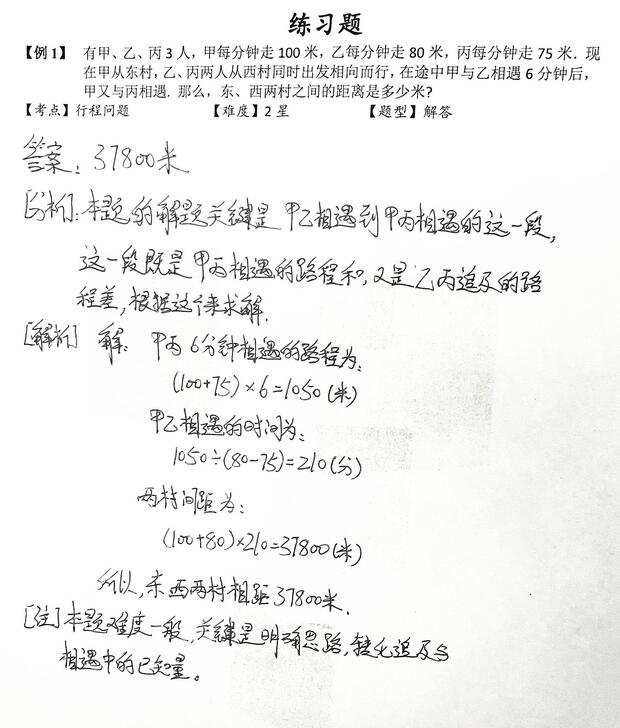 练习题
【例1】 有甲、乙、丙3人，甲每分钟走100米，乙每分钟走80米，丙每分钟走75米．现
在甲从东村，乙、丙两人从西村同时出发相向而行，在途中甲与乙相遇6分钟后，
甲又与丙相遇. 那么，东、西两村之间的距离是多少米?
【考点】行程问题 【难度】2星 【题型】解答
答案：37800米
[分析]：本题的解题关键是甲乙相遇到甲丙相遇的这一段，
这一段既是甲丙相遇的路程和，又是乙丙追及的路
程差，根据这个来求解.
[解析] 解：甲丙6分钟相遇的路程为：
(100+75)×6=1050(米)
甲乙相遇的时间为：
1050÷(80-75)=210(分)
两村间距为：
(100+80)×210=37800(米)
所以，东西两村相距37800米.
[注]本题难度一般，关键是明确思路，转化追及与
相遇中的已知量。